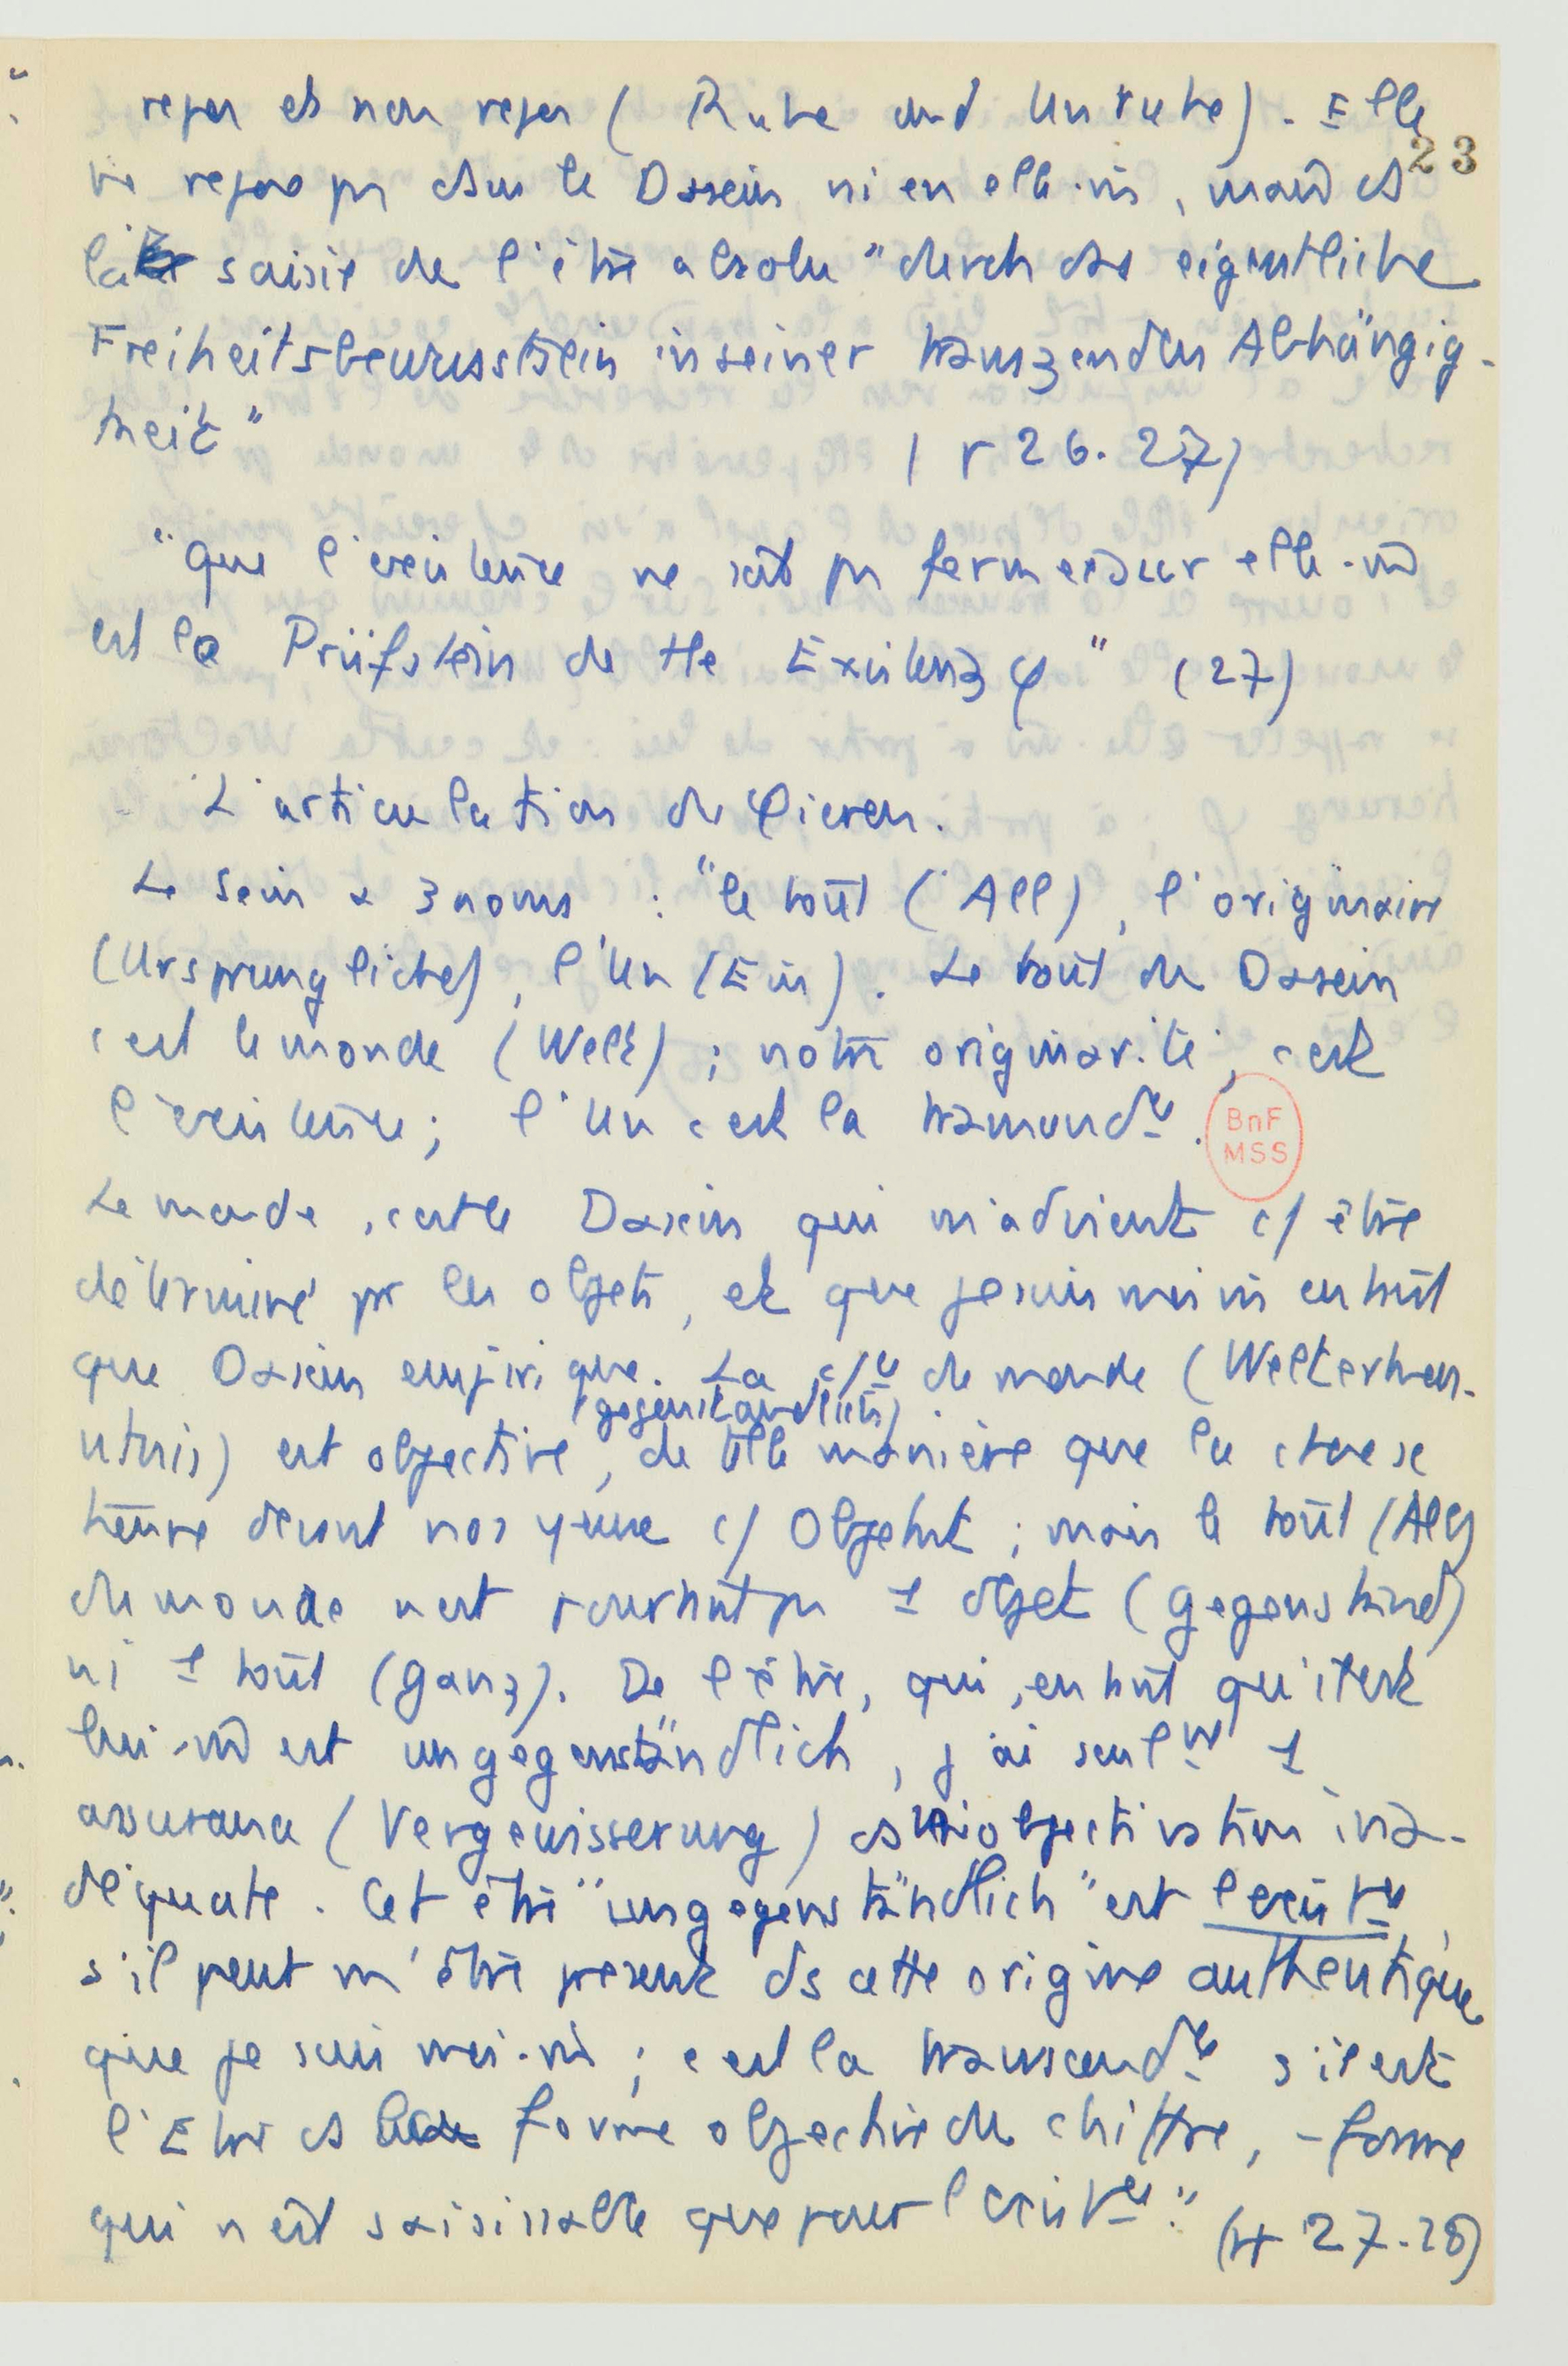 repos et non repos (Ruhe und Unruhe). Elle
23
ne repose pas dans le Dasein ni en elle-m̂, mais ds
la saisie de l'être absolu "durch das eigentliche
Freiheitsbewusstsein in seiner transzendten Abhängig-
keit"
(p 26.27)
"Que l'existence ne soit pas fermée sur elle-m̂
est le Prüfstein de tte Existenz φ" (27)
L'articulation du φieren.
Le Sein a 3 noms : "le tout (All), l'originaire
(Ursprungliche), l'Un (Ein). Le tout du Dasein
c'est le monde (Welt) ; notre originarité, c'est
l'existence ; l'Un c'est la transcendce.
BnF
MSS
Le monde, c'est le Dasein qui m'advient c/ être
déterminé par les objets, et que je suis moi m̂ en tant
que Dasein empirique. La c/ce du monde (Welterken-
(gegenständlich)
ntnis) est objective, de telle manière que la chose se
tienne devant nos yeux c/ Objekt ; mais le tout (All)
du monde n'est pourtant pas 1 objet (Gegenstand)
ni 1 tout (Ganz). De l'être, qui, en tant qu'il est
lui-m̂ est ungegenständlich, j'ai seulmt 1
assurance (Vergewisserung) ds objectivation ina-
déquate. Cet être "ungegenständlich" est l'existce,
s'il peut m'être présent ds cette origine authentique
que je suis moi-m̂ ; c'est la transcendce s'il est
l'Etre ds la forme objective du chiffre, - forme
qui n'est saisissable que pour l'existce." (p 27-28)